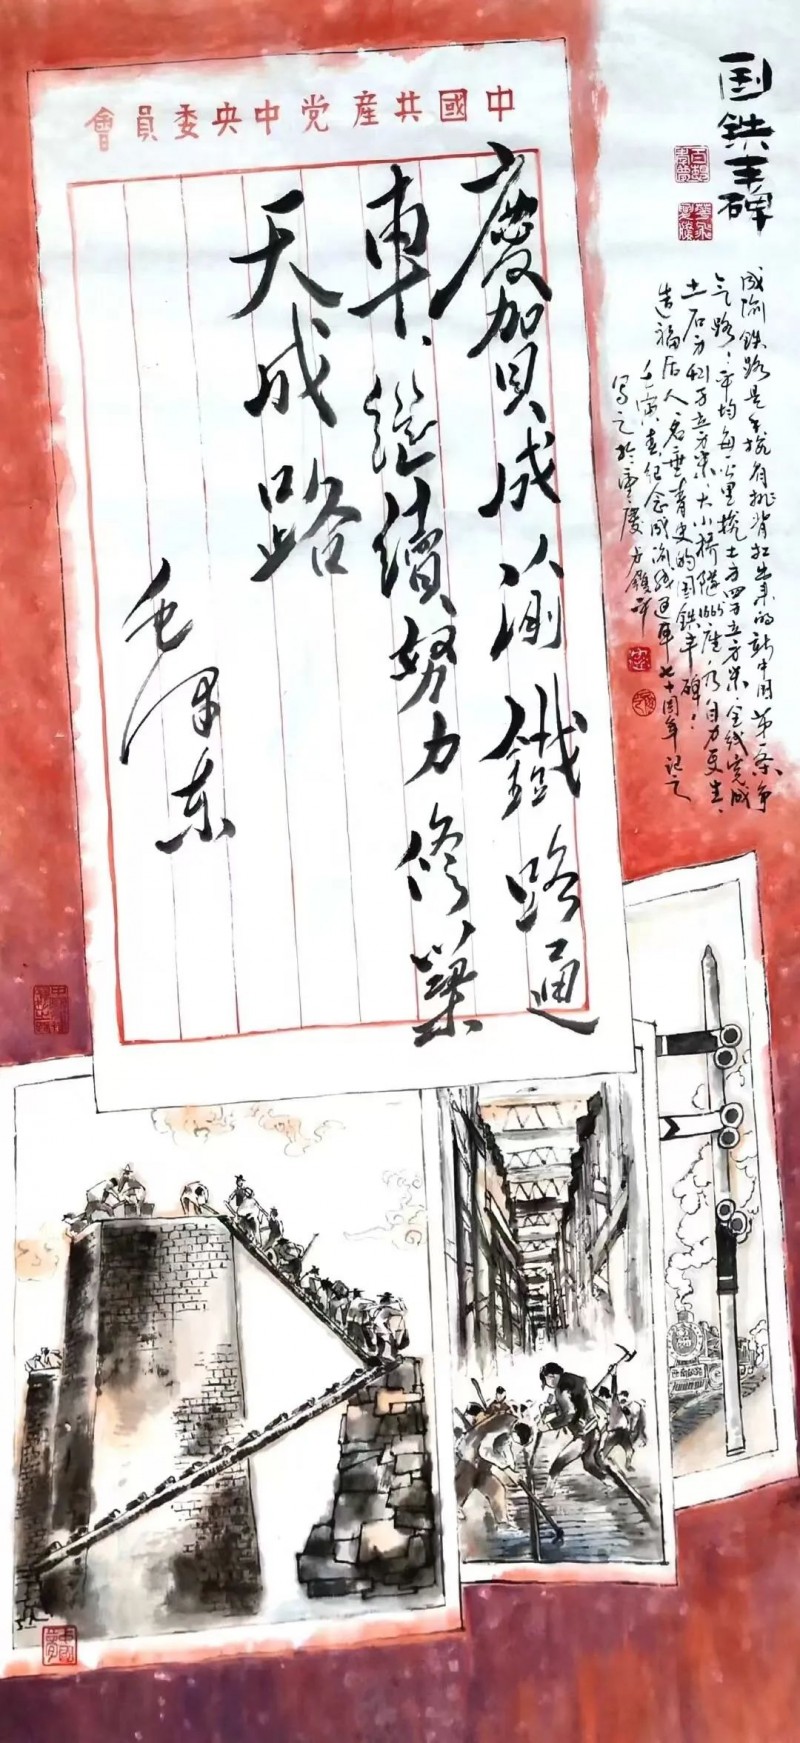 国铁丰碑
成渝铁路是手挽肩挑背扛出来的新中国第一条争
气路：平均每一公里挽土方四万立方米、全线完成
土石方421万立方米、大小桥隧1665座，乃自力更生、
造福后人、名垂青史的国铁丰碑！
壬寅春纪念成渝线通车七十周年记之
写之於重慶
中國共産党中央委員會
慶贺成渝鐵路通
車、繼續努力修築
天成路
毛泽东